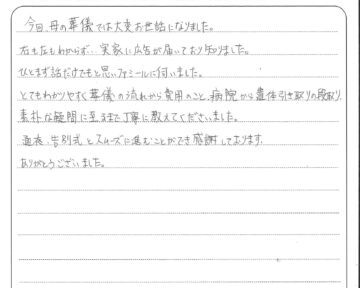 今回、母の葬儀では大変お世話になりました。
右も左もわからず、実家に広告が届いており知りました。
ひとまず話だけでもと思いファミールに伺いました。
とてもわかりやすく葬儀の流れから費用のこと、病院から遺体引き取りの段取り、
素朴な疑問に至るまで丁寧に教えてくださいました。
通夜、告別式とスムーズに進むことができ感謝しております。
ありがとうございました。